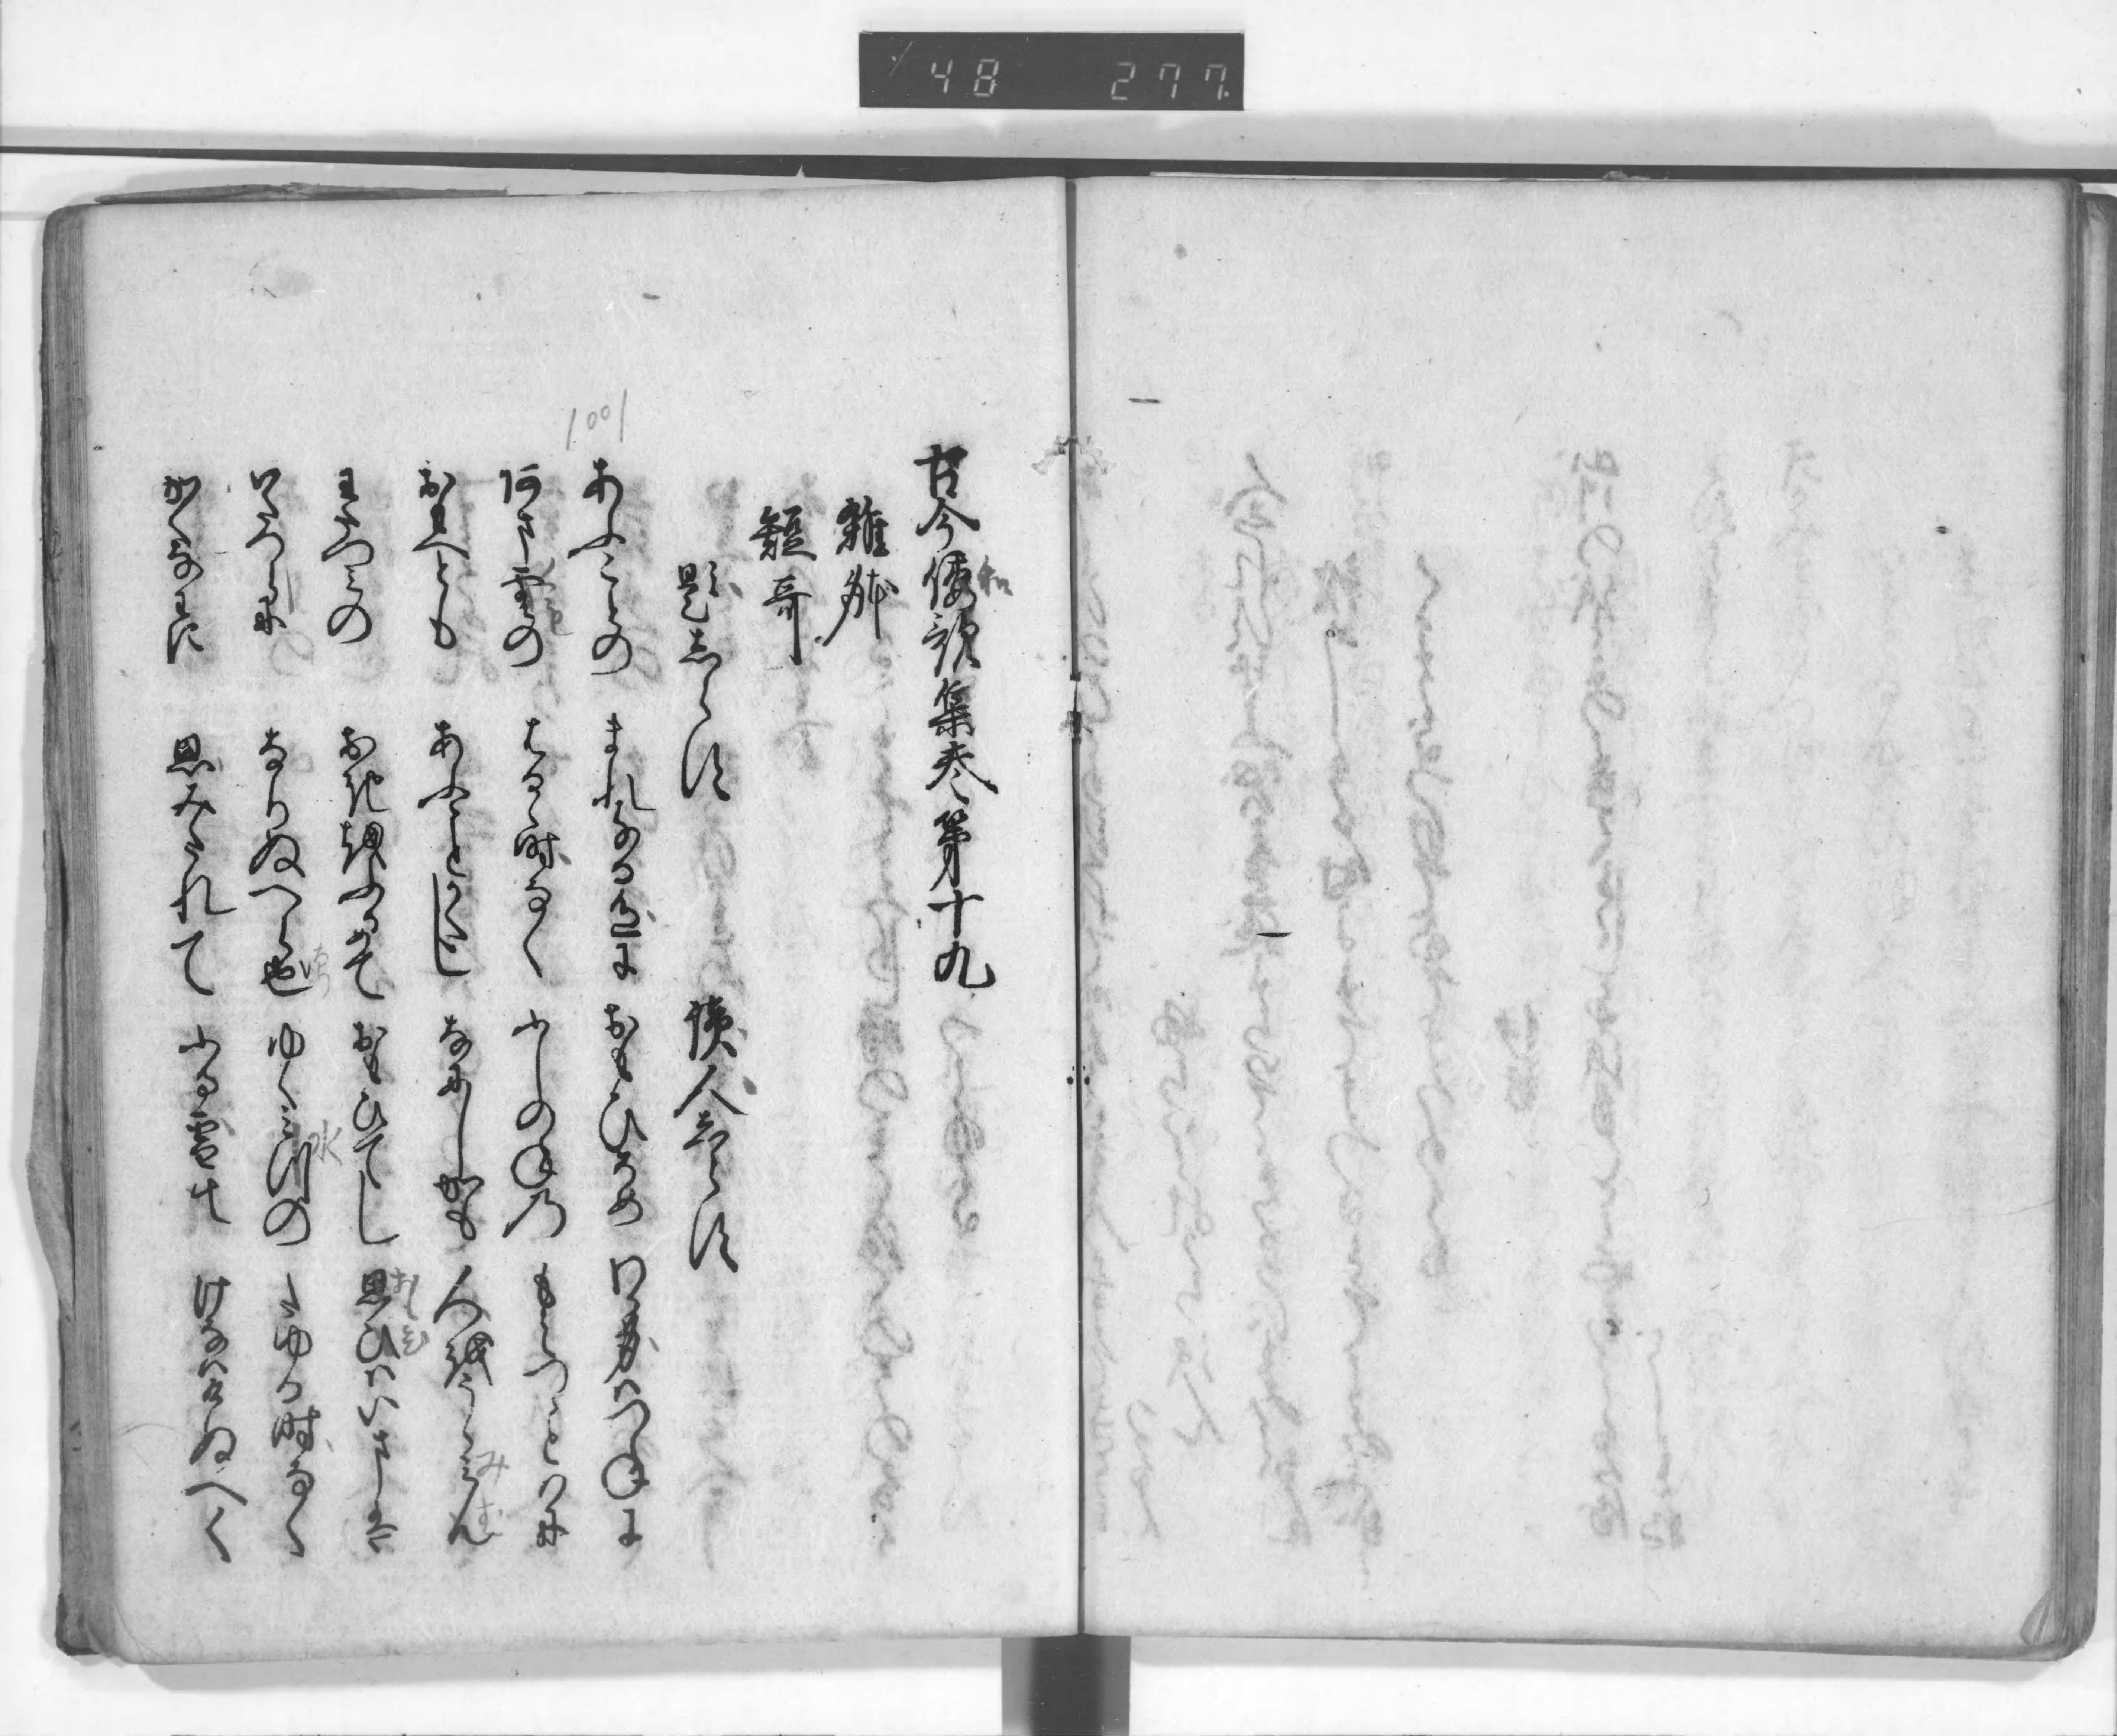 48 277
古今倭謌集巻第十九
和
雑躰
短哥
題しらす
読人しらす
1001
あふことの まれなるいろに おもひそめ わか身はつねに
あまくもの はるゝ時なく ふしのねの もえつゝとはに
おもへとも あふことかたし なにしかも 人をうらみん
みむ
わたつみの おきをふかめて おもひてし 思ひはいまは
おもひ
いたつらに なりぬへら也 ゆく水の たゆる時なく
水
かくなわに 思みたれて ふる雪の けなはけぬへく